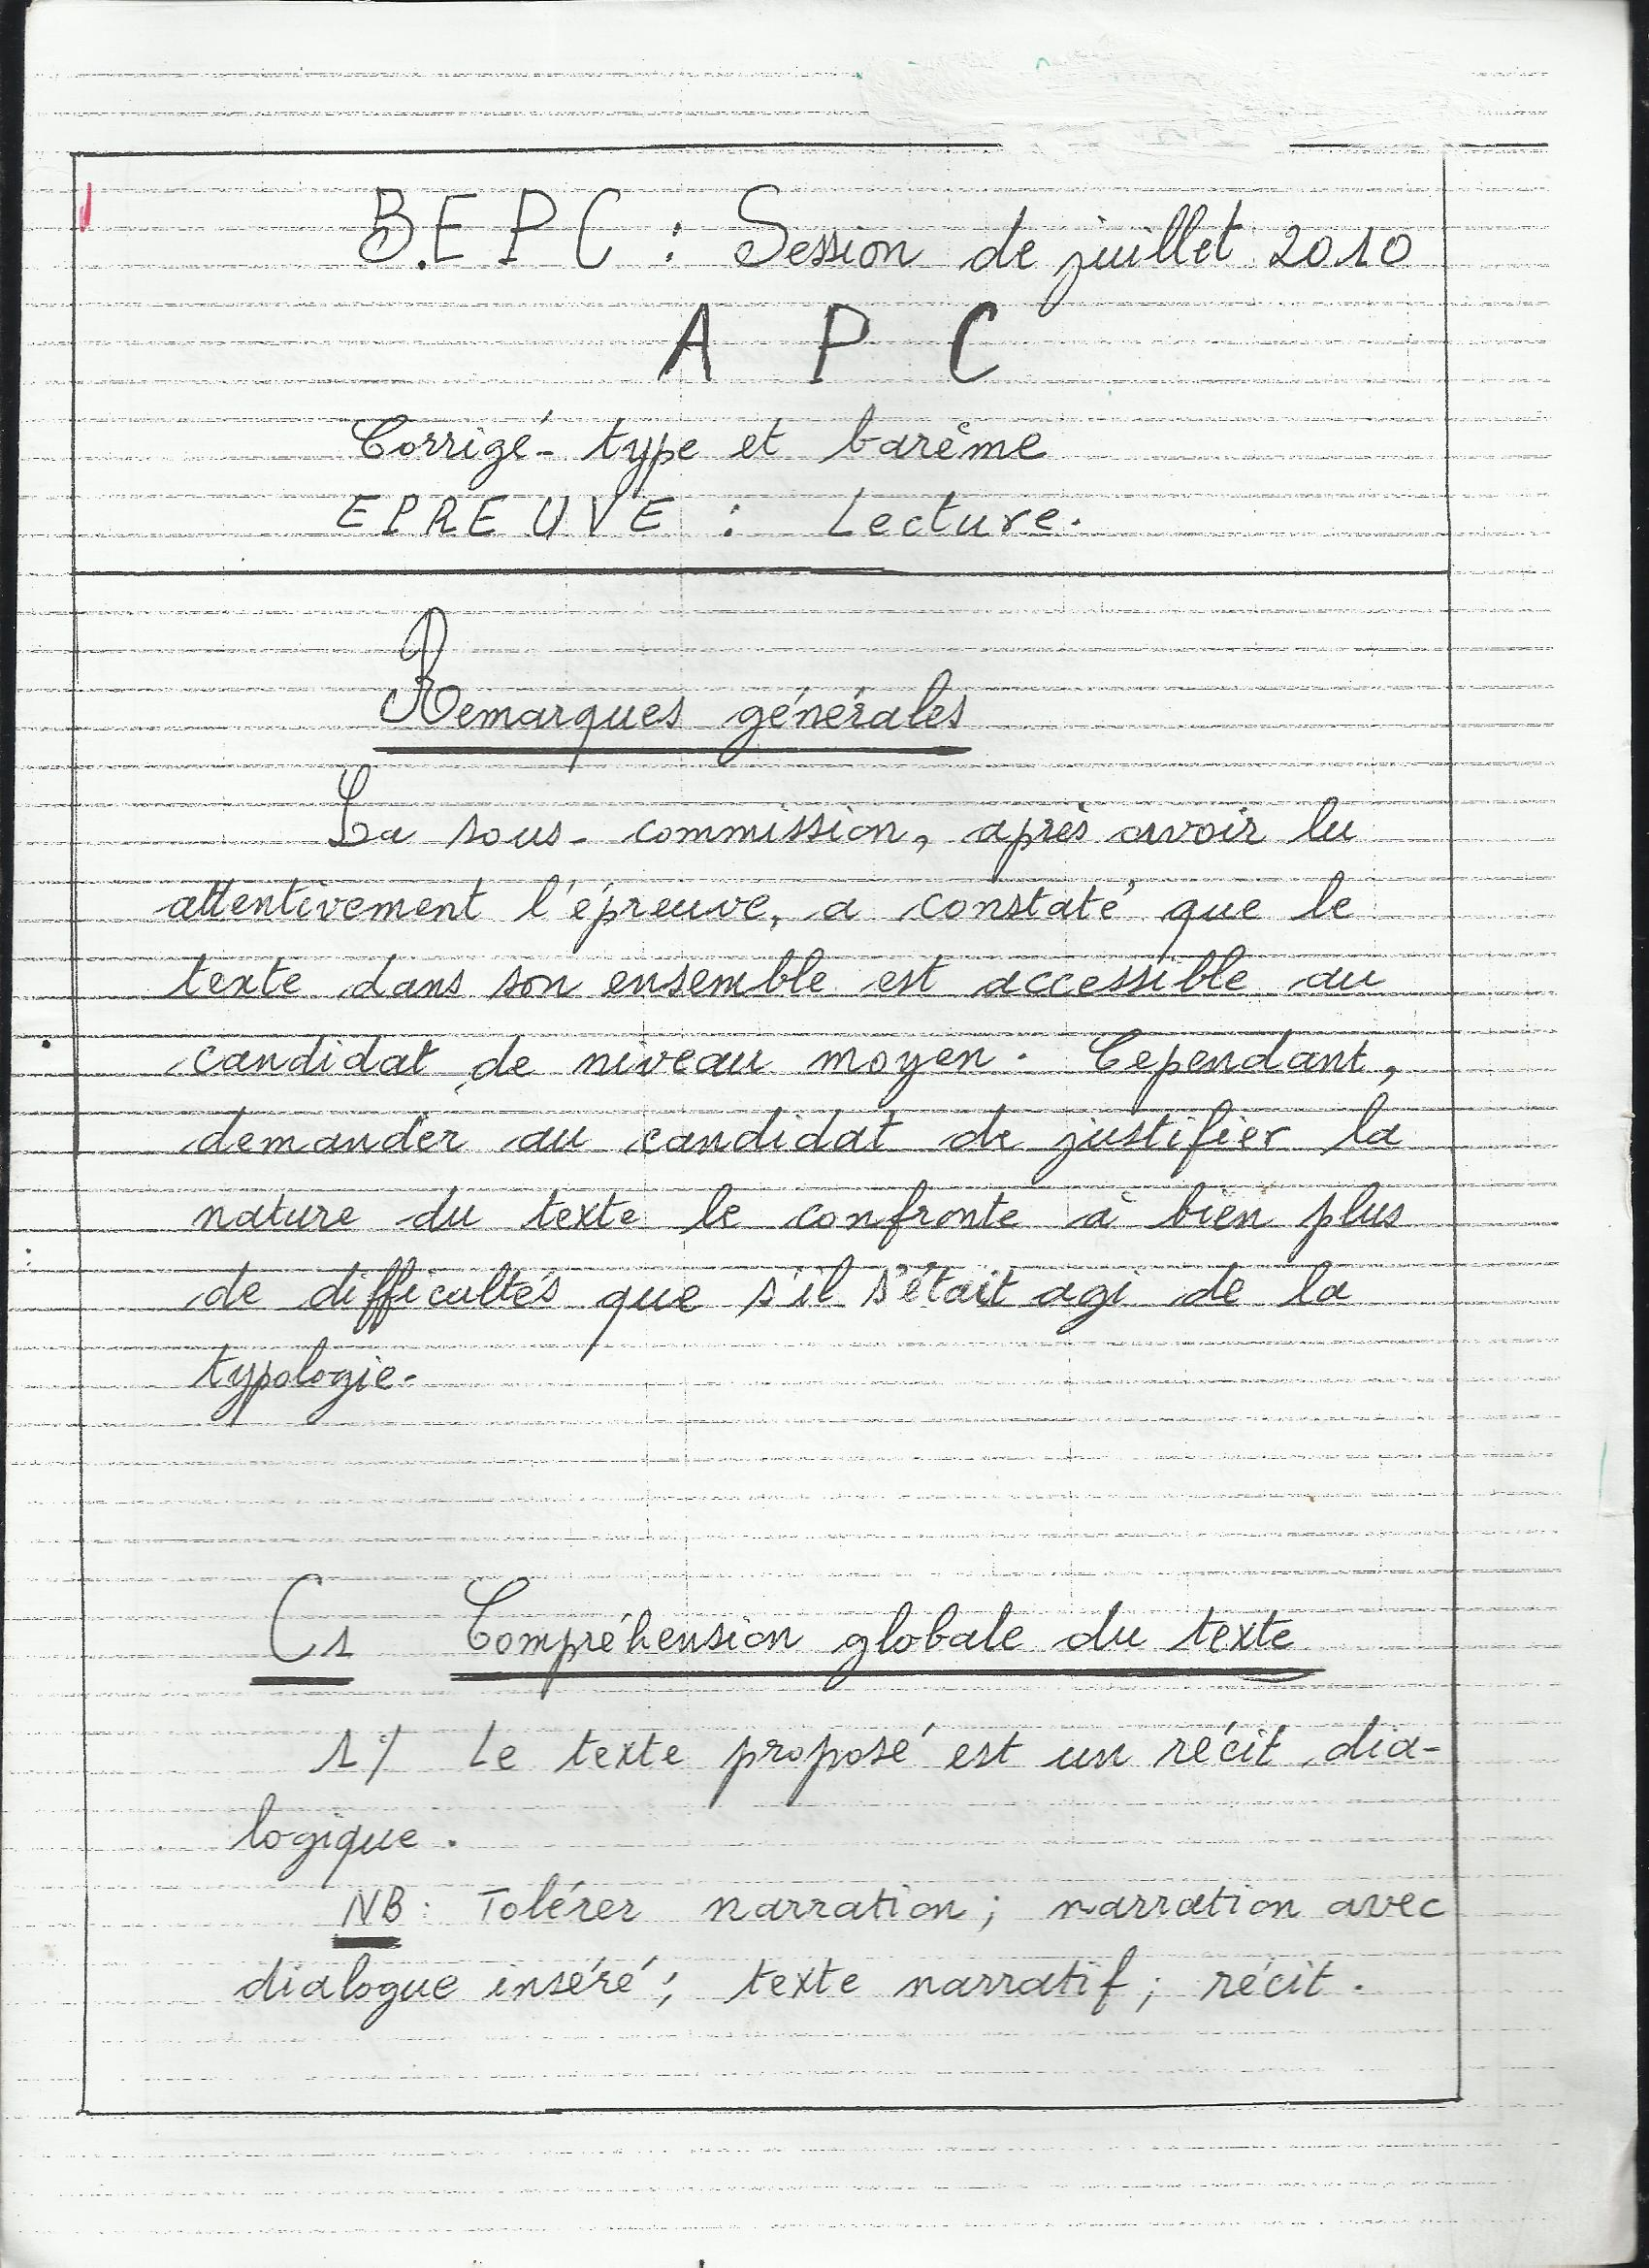 B.EPC : Session de juillet 2010
A P C
Corrigé-type et barême
EPREUVE : Lecture.
Remarques générales
La sous-commission, après avoir lu
attentivement l'épreuve, a constaté que le
texte dans son ensemble est accessible au
candidat de niveau moyen. Cependant,
demander au candidat de justifier la
nature du texte le confronte à bien plus
de difficultés que s'il s'était agi de la
typologie.
C1 Compréhension globale du texte
1°/ Le texte proposé est un récit dia-
logique.
NB : Tolérer narration ; narration avec
dialogue inséré ; texte narratif ; récit.